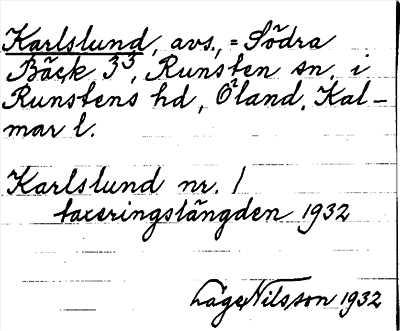 Karlslund, avs., = Södra
Bäck 3³, Runsten sn. i
Runstens hd, Öland, Kal-
mar l.
Karlslund nr. 1
taxeringslängden 1932
Lage Nilsson 1932